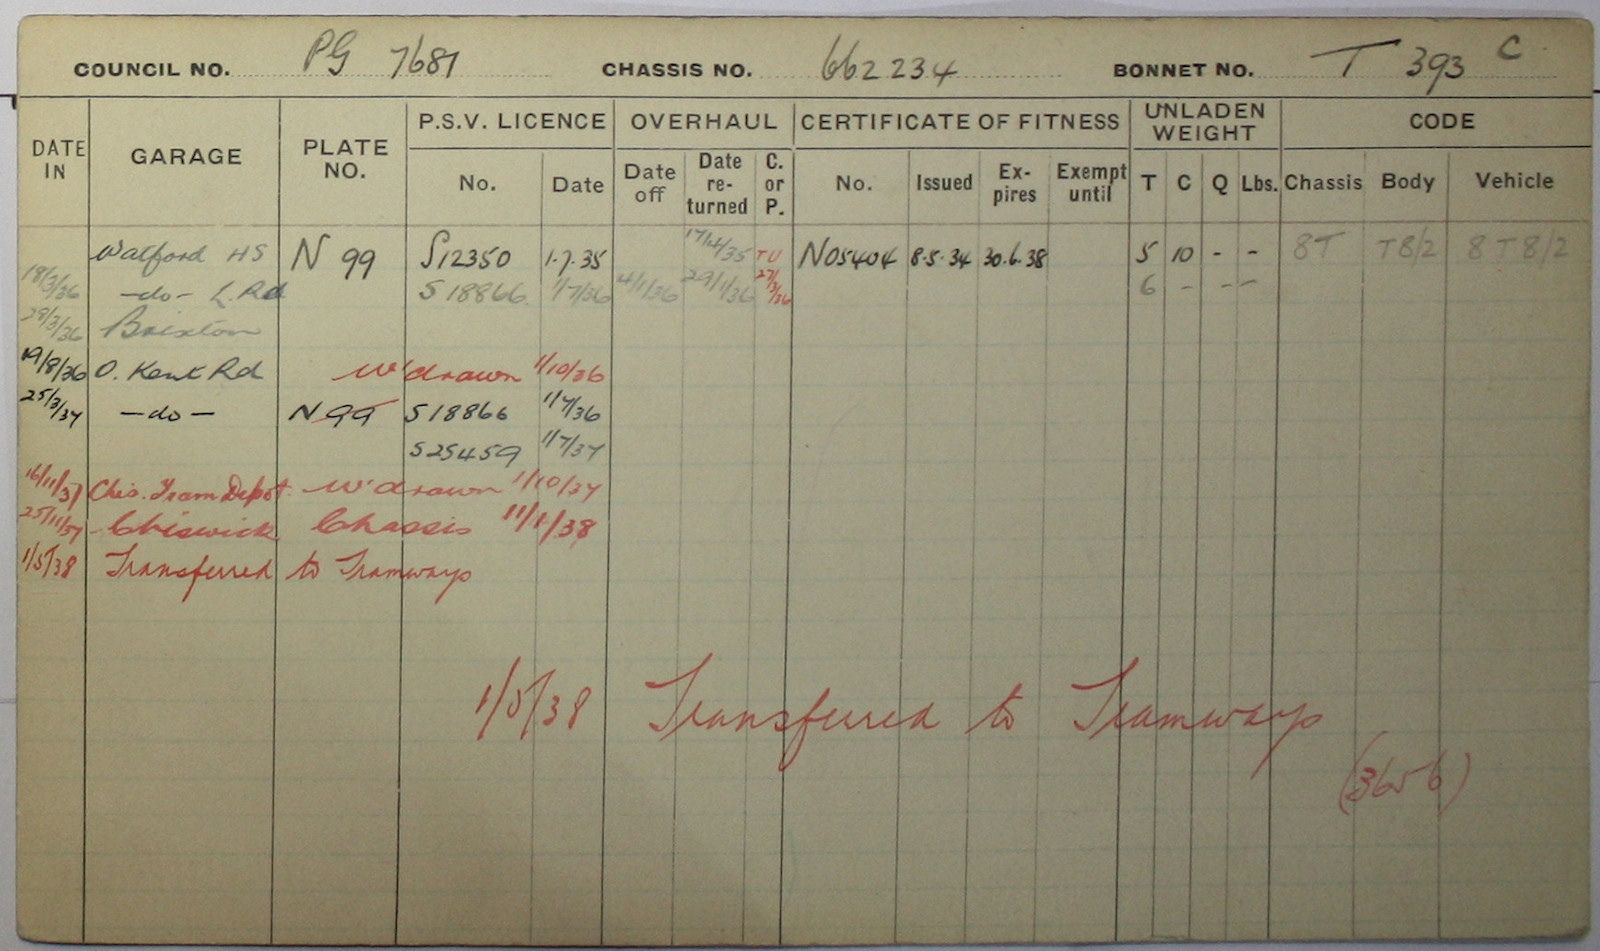 COUNCIL NO. PG 7687 CHASSIS NO. 662234 BONNET NO. T 393 C
DATE IN GARAGE PLATE NO. P.S.V. LICENCE OVERHAUL CERTIFICATE OF FITNESS UNLADEN WEIGHT CODE
No. Date Date off Date re-turned C. or P. No. Issued Ex-pires Exempt until T C Q Lbs. Chassis Body Vehicle
Watford HS N 99 S12350 1.7.35 17/4/35 TU N05404 8.5.34 30.6.38 5 10 - - 8T T8/2 8T8/2
18/3/36 -do- L. Rd S18866 1/7/36 4/1/36 29/1/36 27/3/36 6 - - -
28/3/36 Brixton
19/8/36 O. Kent Rd W'drawn 1/10/36
25/3/37 -do- N 99 S18866 1/7/36
S25459 1/7/37
16/11/37 Chis. Tram Depot. W'drawn 1/10/37
25/11/37 Chiswick Chassis 11/1/38
1/5/38 Transferred to Tramways
1/5/38 Transferred to Tramways
(3656)